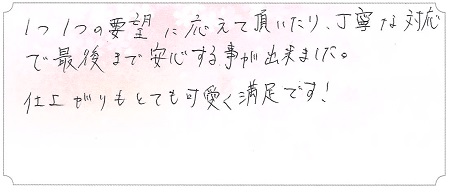 1つ1つの要望に応えて頂いたり、丁寧な対応
で最後まで安心する事が出来ました。
仕上がりもとても可愛く満足です!